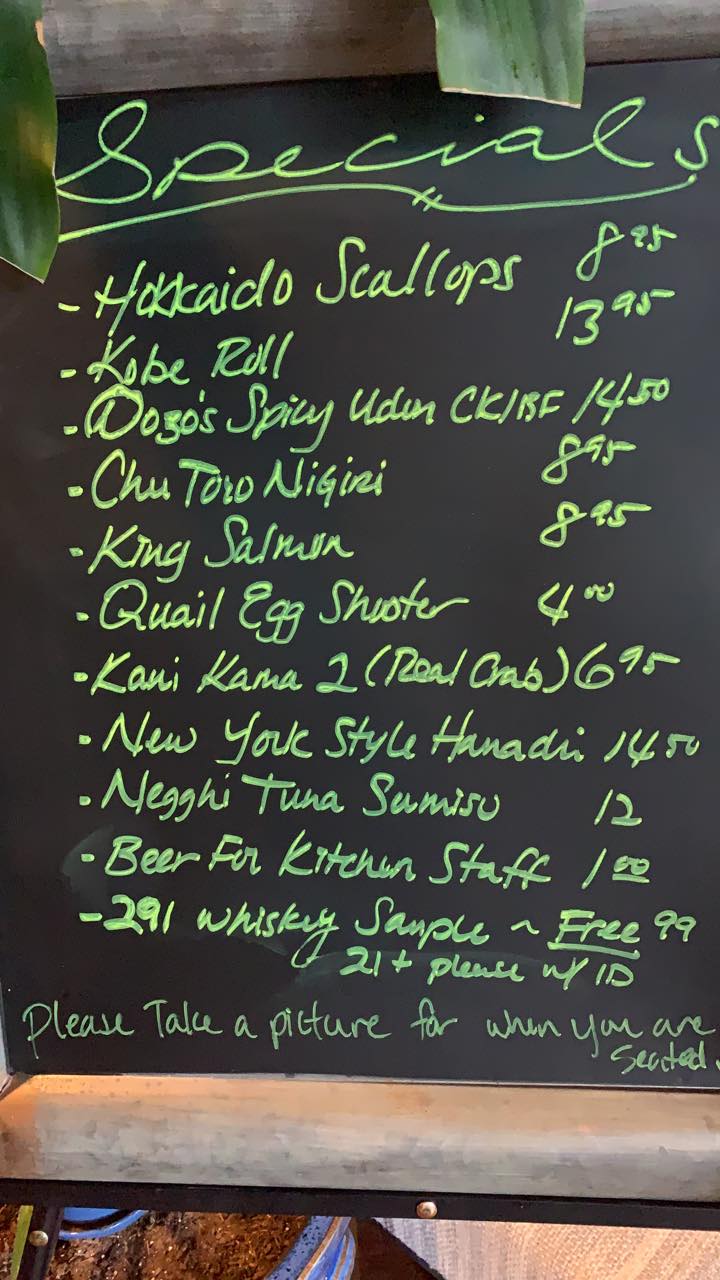 Specials
- Hokkaido Scallops 8 95
- Kobe Roll 13 95
- Dozo's Spicy Udon CK/BF 14 50
- Chu Toro Nigiri 8 95
- King Salmon 8 95
- Quail Egg Shooter 4 00
- Kani Kama 2 (Real Crab) 6 95
- New York Style Hanadri 14 50
- Negghi Tuna Sumiso 12
- Beer For Kitchen Staff 1 00
- 291 Whiskey Sample ~ Free 99
21+ please w/ ID
Please Take a picture for when you are
seated.